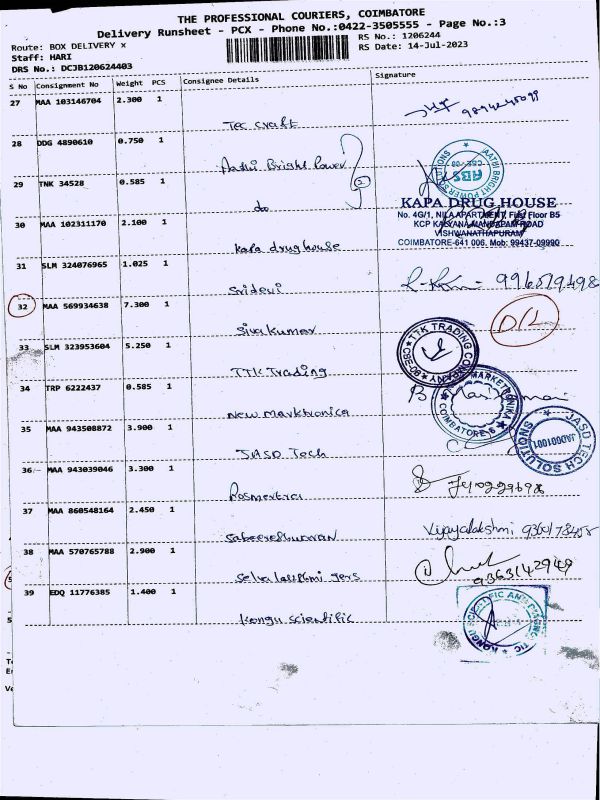 THE PROFESSIONAL COURIERS, COIMBATORE
Delivery Runsheet - PCX - Phone No.:0422-3505555 - Page No.:3
Route: BOX DELIVERY x
RS No.: 1206244
Staff: HARI
RS Date: 14-Jul-2023
DRS No.: DCJB120624403
S No Consignment No Weight PCS Consignee Details Signature
27 MAA 103146704 2.300 1
Tec craft
28 DDG 4890610 0.750 1
Aathi Bright Power
AATHI BRIGHT POWER SOLUTIONS
ABS
29 TNK 34528 0.585 1
do
2
KAPA DRUG HOUSE
No. 4G/1, NILA APARTMENT, First Floor B5
30 MAA 102311170 2.100 1
KCP KALYANA MANDAPAM ROAD
VISHWANATHAPURAM
COIMBATORE-641 006. Mob: 99437-09990
Kapa drug house
31 SLM 324076965 1.025 1
Sridevi
32 MAA 569934638 7.300 1
D/L
Sivakumar
33 SLM 323953604 5.250 1
TTK TRADING COMPANY
TTK Trading
34 TRP 6222437 0.585 1
New Marktronica
MARKETRONIKA
COIMBATORE-6
35 MAA 943508872 3.900 1
JASD Tech
JASD TECH SOLUTIONS
36 MAA 943039046 3.300 1
37 MAA 860548164 2.450 1
Vijayalakshmi
38 MAA 570765788 2.900 1
Selva lakshmi
9363142949
39 EDQ 11776385 1.400 1
Kongu scientific